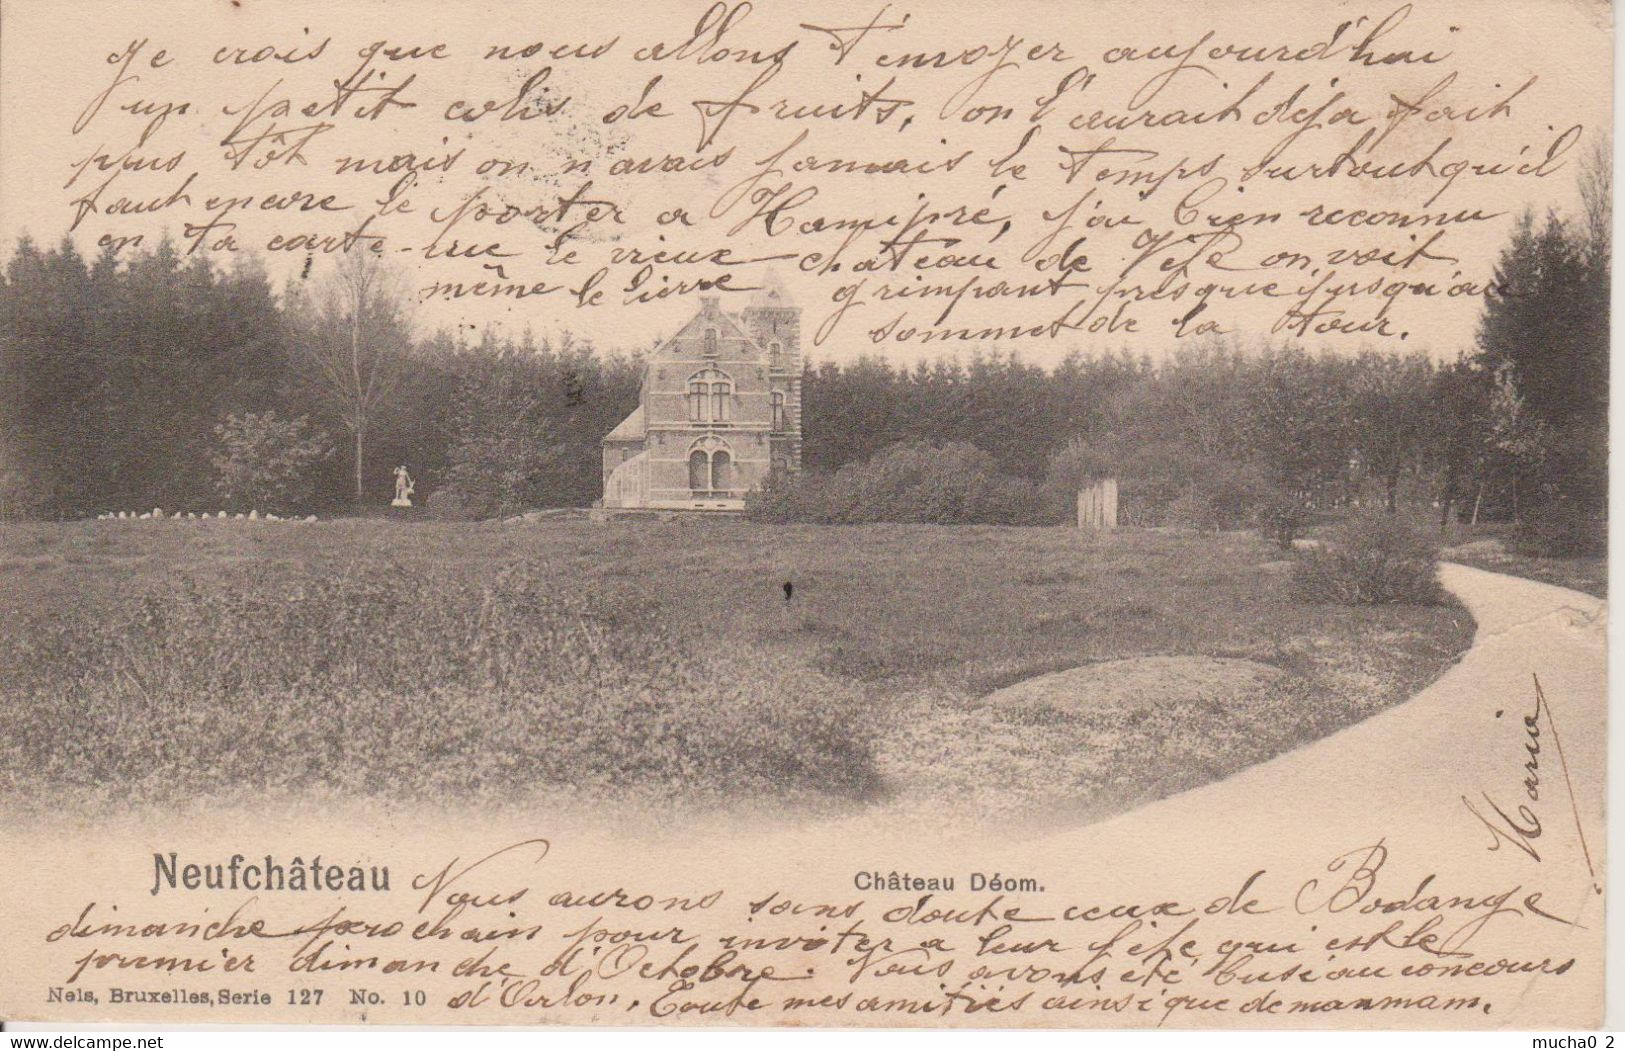 Je crois que nous allons t'envoyer aujourd'hui
un petit colis de fruits, on l'aurait déja fait
plus tôt mais on n'avais jamais le temps surtout qu'il
faut encore le porter a Hamipré, j'ai bien reconnu
en ta carte-vue le vieux château de on voit
même le lierre grimpant presque jusqu'au
sommet de la tour.
Marie
Neufchâteau
Château Déom.
Nous aurons sans doute ceux de Bodange
dimanche prochain pour inviter a leur fête qui est le
premier dimanche d'Octobre. Nous avons été au concours
Nels, Bruxelles, Serie 127 No. 10
d'Arlon. Toute mes amitiés ainsi que de manmam.
mucha0_2